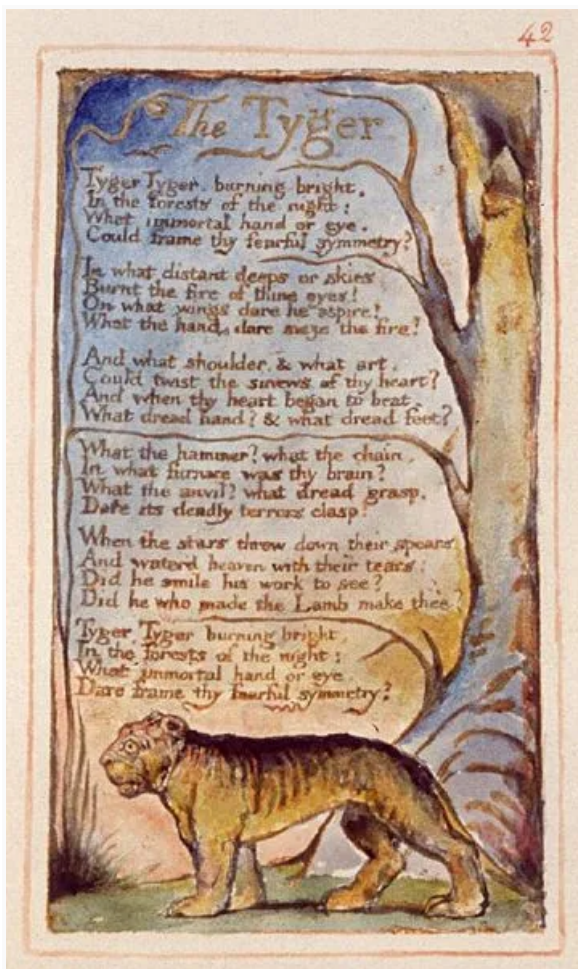 42
The Tyger
Tyger Tyger. burning bright,
In the forests of the night:
What immortal hand or eye.
Could frame thy fearful symmetry?
In what distant deeps or skies
Burnt the fire of thine eyes!
On what wings dare he aspire!
What the hand, dare sieze the fire!
And what shoulder, & what art,
Could twist the sinews of thy heart?
And when thy heart began to beat,
What dread hand? & what dread feet?
What the hammer? what the chain,
In what furnace was thy brain?
What the anvil? what dread grasp,
Dare its deadly terrors clasp!
When the stars threw down their spears
And water'd heaven with their tears:
Did he smile his work to see?
Did he who made the Lamb make thee?
Tyger Tyger burning bright,
In the forests of the night:
What immortal hand or eye,
Dare frame thy fearful symmetry?